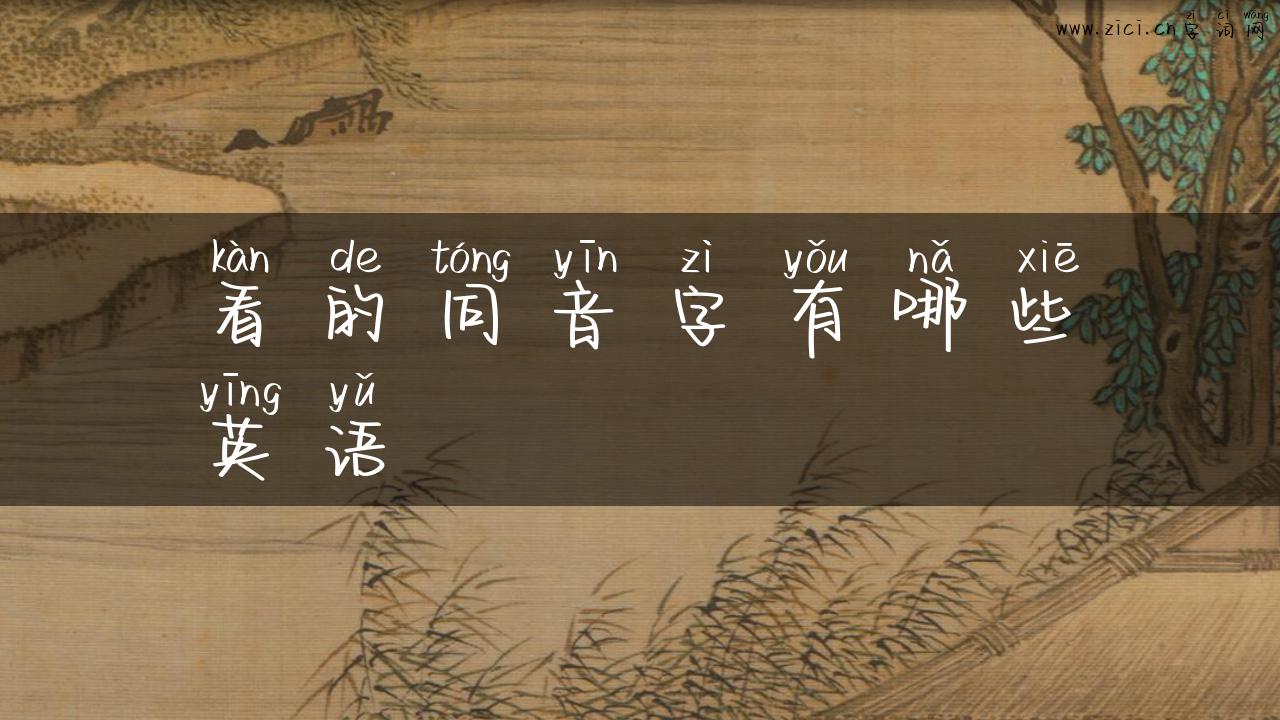 zì cí wǎng
www.zici.cn字词网
kàn de tóng yīn zì yǒu nǎ xiē
看的同音字有哪些
yīng yǔ
英语